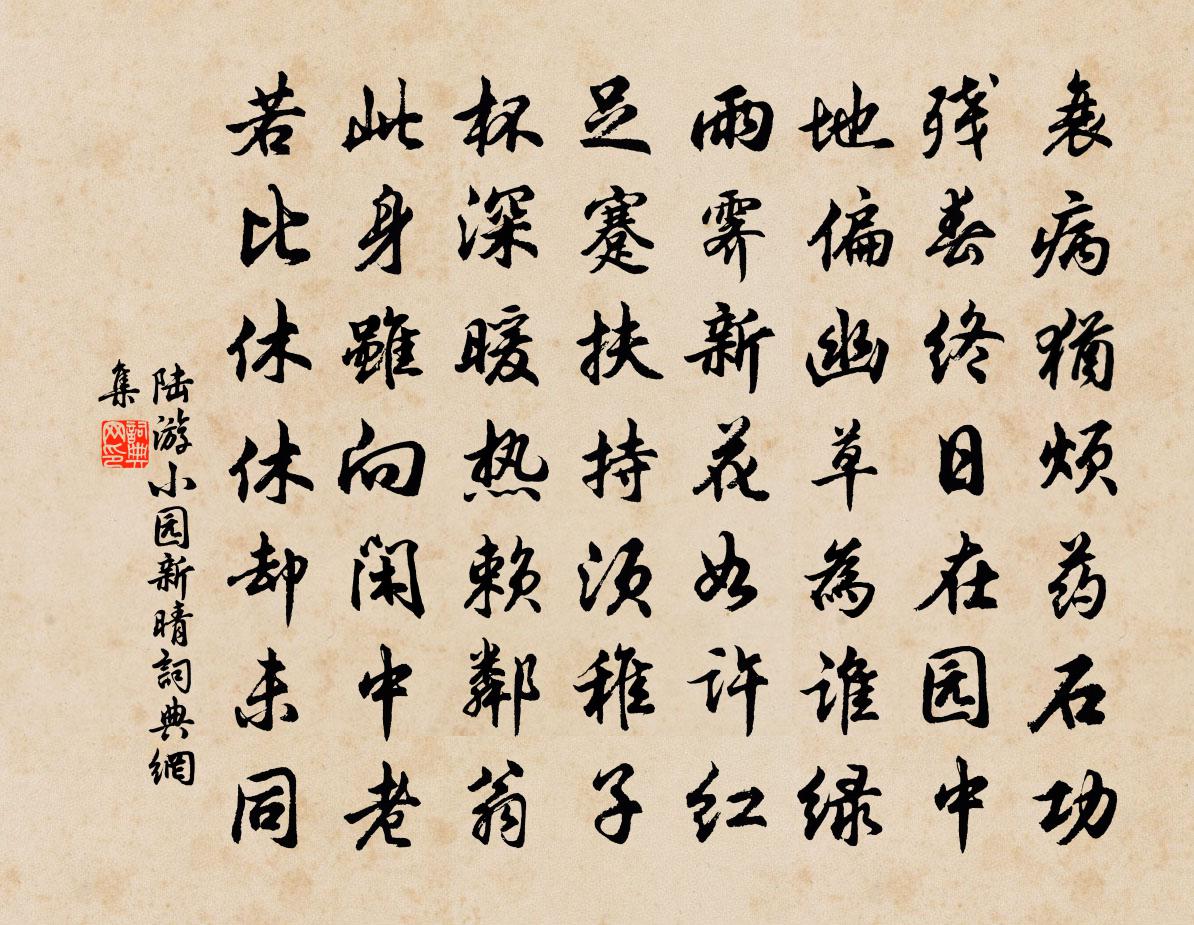 衰病猶烦药石功
残春终日在园中
地偏幽草為谁绿
雨霁新花如许红
足蹇扶持须稚子
杯深暖热赖鄰翁
此身雖向闲中老
若比休休却未同
陆游小园新晴詞典網
集
詞典
网印